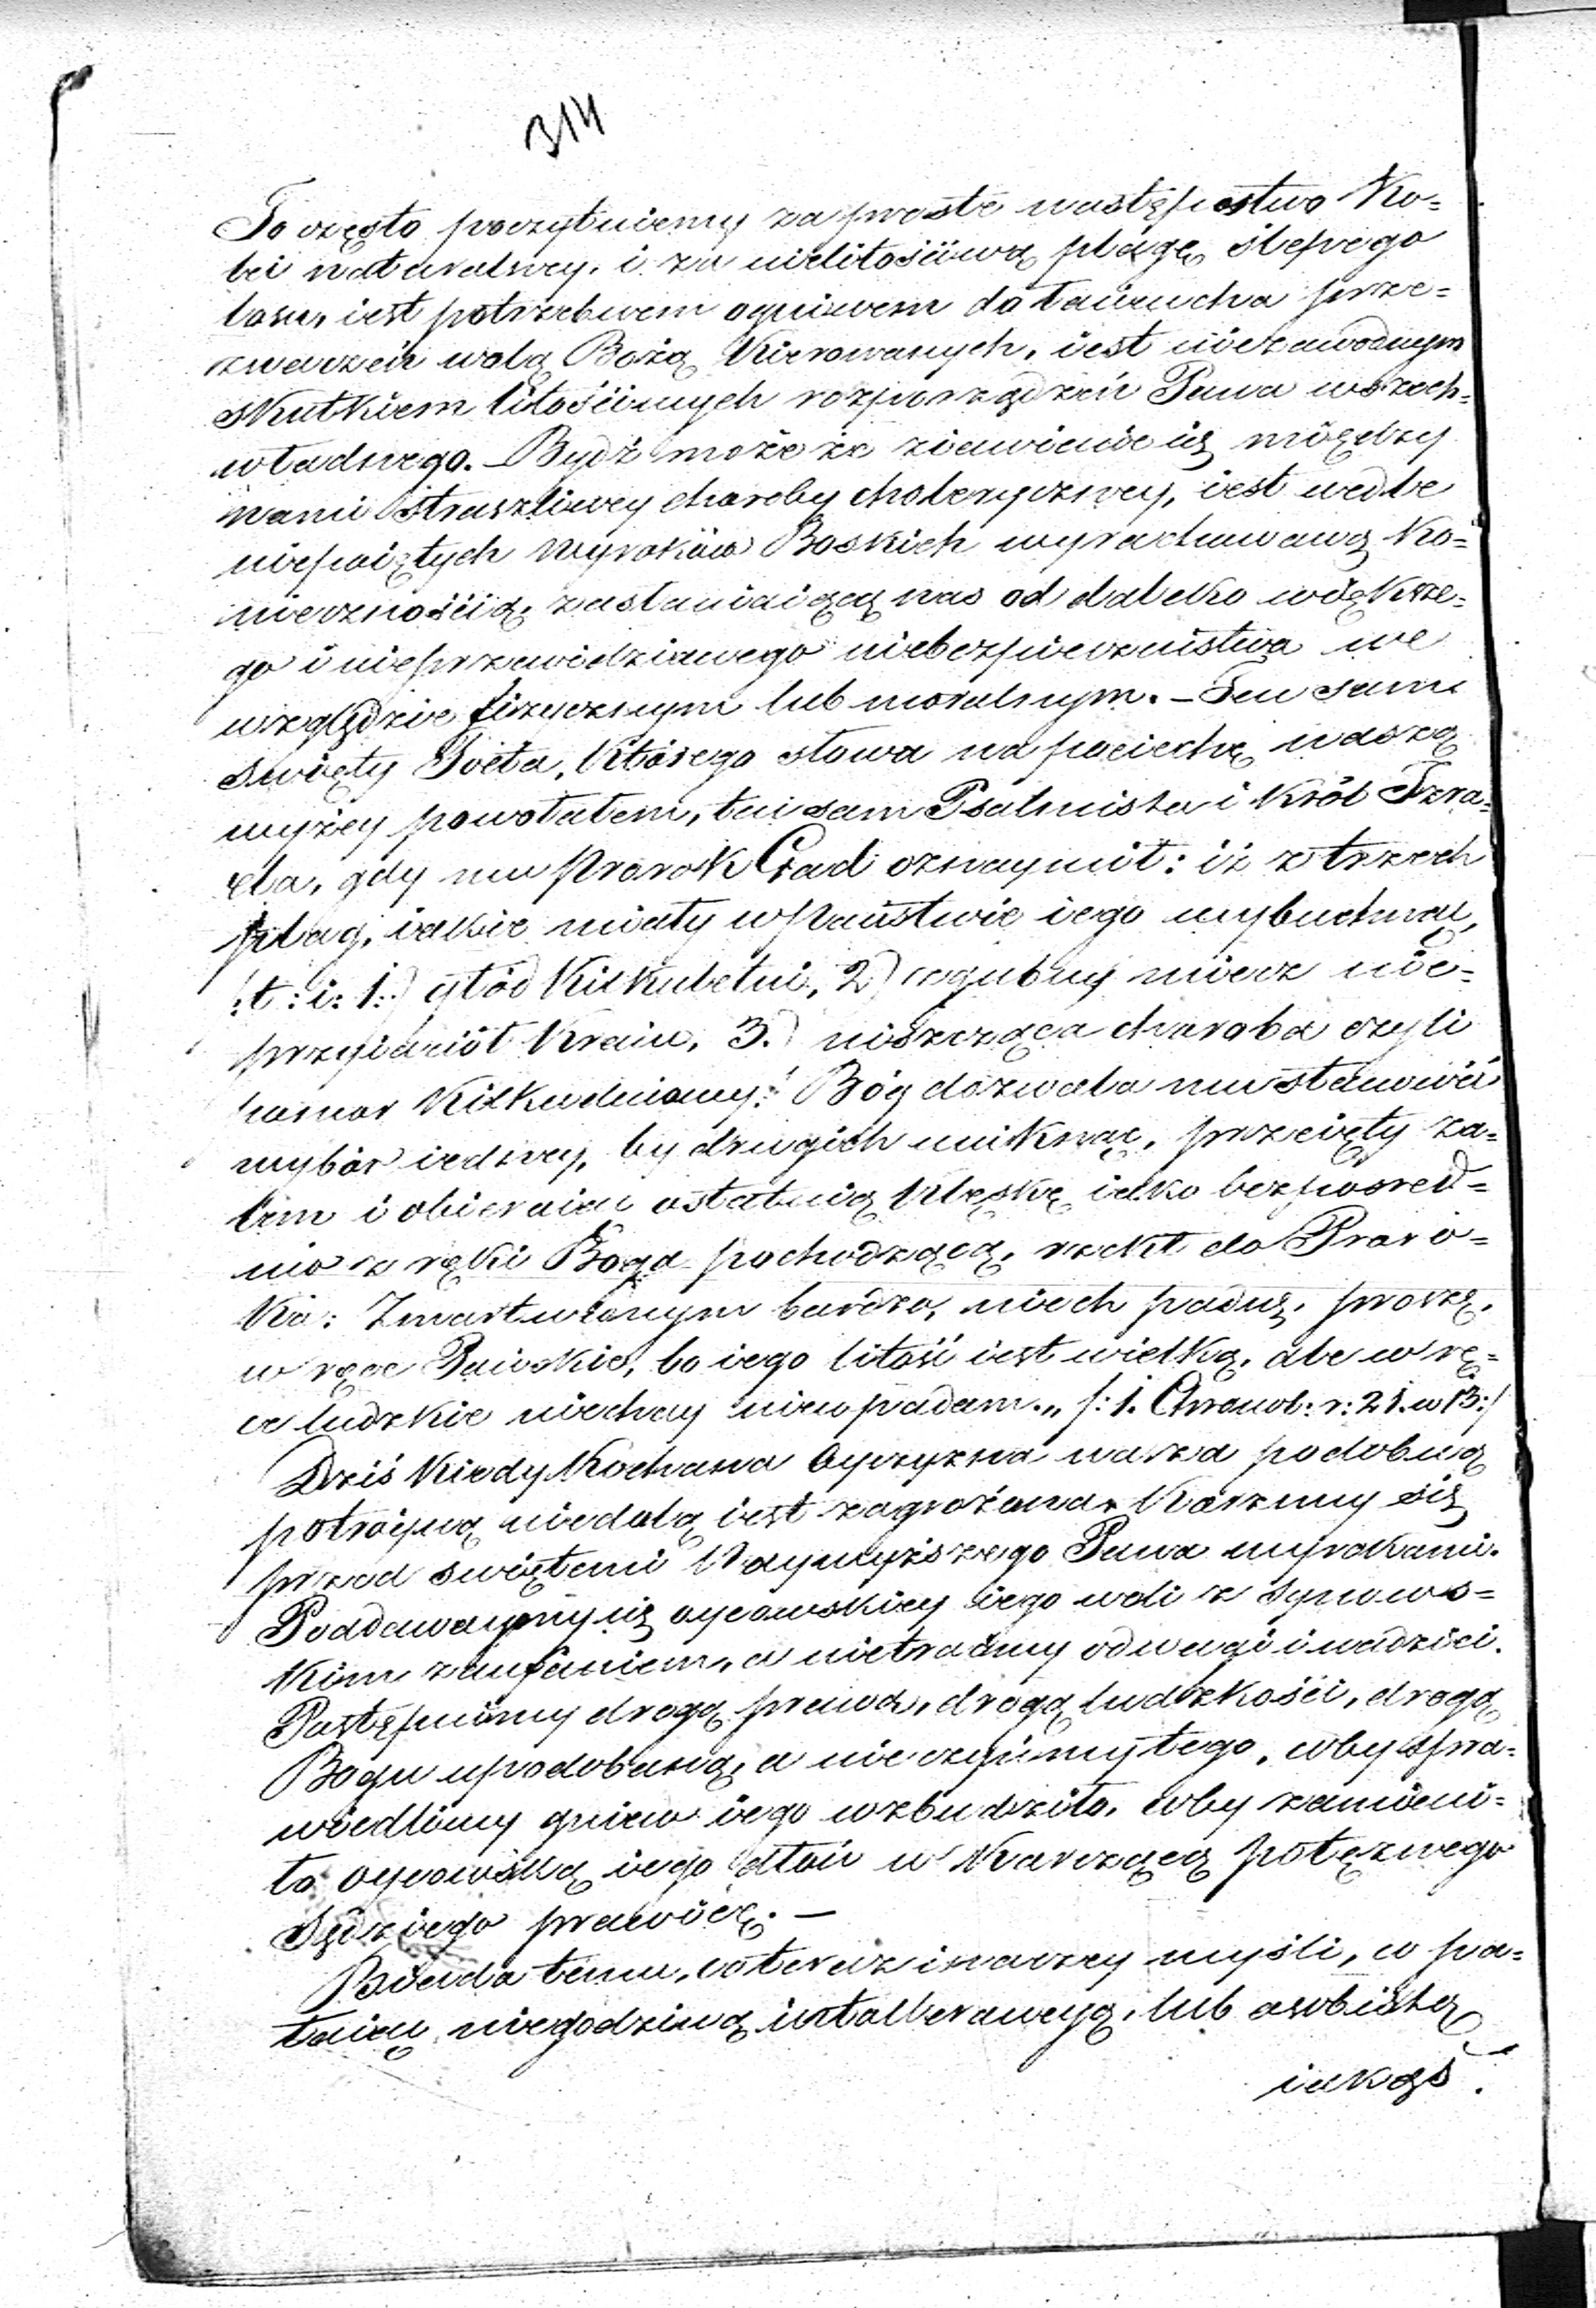 314
To często poczytuiemy za proste następstwo Ko=
lei naturalney, i za nielitościwą plagę ślepego
losu, iest potrzebnem ogniwem do łańcucha prze=
znaczeń wolą Bożą Kierowanych, iest niezawodnym
skutkiem litościwych rozporządzeń Pana wszech=
władnego. – Bydź może że ziawienie się między
nami straszliwey choroby choleryczney, iest wedle
niepoiętych wyroków Boskich wyrachowaną Ko=
niecznością, zasłaniaiącą nas od daleko większe=
go i nieprzewidzianego niebezpieczeństwa we
względzie fizycznym lub moralnym. – Ten sam
święty Poeta, Którego słowa na pociechę naszą
wyżey powołałem, ten sam Psalmista i Król Izra=
ela, gdy mu Prorok Gad oznaymił: iż z trzech
plag, iakie miały w Państwie iego wybuchnąć,
/:t: i: 1.) głód Kilkuletni, 2) zgubny miecz nie=
przyiaciół Kraiu, 3.) niszcząca choroba czyli
pomor Kilkudniowy:/ Bóg dozwala mu stanowić
wybór iedney, by drugich uniknąć, przeięty ża=
lem i obieraiąc ostatnią Klęskę iako bezpośred=
nio z ręki Boga pochodzącą, rzekł do Proro=
Ka: Zmartwionym bardzo, niech padnę, proszę,
w ręce Pańskie, bo iego litość iest wielką, ale w rę=
ce ludzkie niechay niewpadam.„ /: 1. Chronol: r: 21. w 13:/
Dziś Kiedy Kochana Oyczyzna nasza podobną
potróyną niedolą iest zagrożona, Korzmy się
przed świętemi Naywyższego Pana wyrokami.
Poddawaymy się oycowskiey iego woli z Synows=
kim zaufaniem, a nietraćmy odwagi i nadziei.
Postępuymy drogą prawa, drogą ludzkości, drogą
Bogu upodobaną, a nie czyńmy tego, coby spra=
wiedliwy gniew iego wzbudziło, coby zamieni=
ło oycowską iego dłoń w Karzącą potężnego
Sędziego prawicę. –
Biada temu, co teraz inaczey myśli, co pa=
łaiąc niegodziwą lub osobistą
iakąś